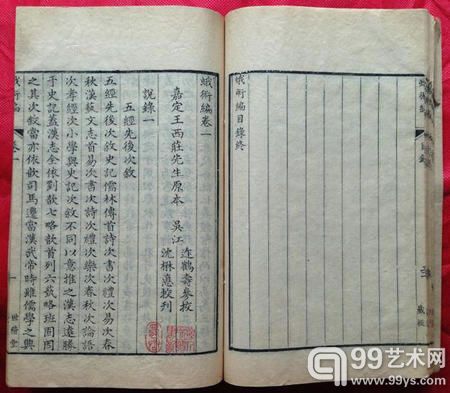 蛾術編目錄終
蛾術編卷一
嘉定王西莊先生原本 吳江
迮鶴壽參校
沈楙悳校刊
說錄一
五經先後次敘
五經先後次敘史記儒林傳首詩次書次禮次易次春
秋漢藝文志首易次書次詩次禮次樂次春秋次論語
次孝經次小學與史記次敘不同以意推之漢志遠勝
于史記蓋漢志全依劉歆七略歆首列六藝略班固因
之其次敘當亦依歆司馬遷當漢武帝時雖儒學之興
蛾術編 卷一 一 世楷堂
99艺术网
www.99ys.com